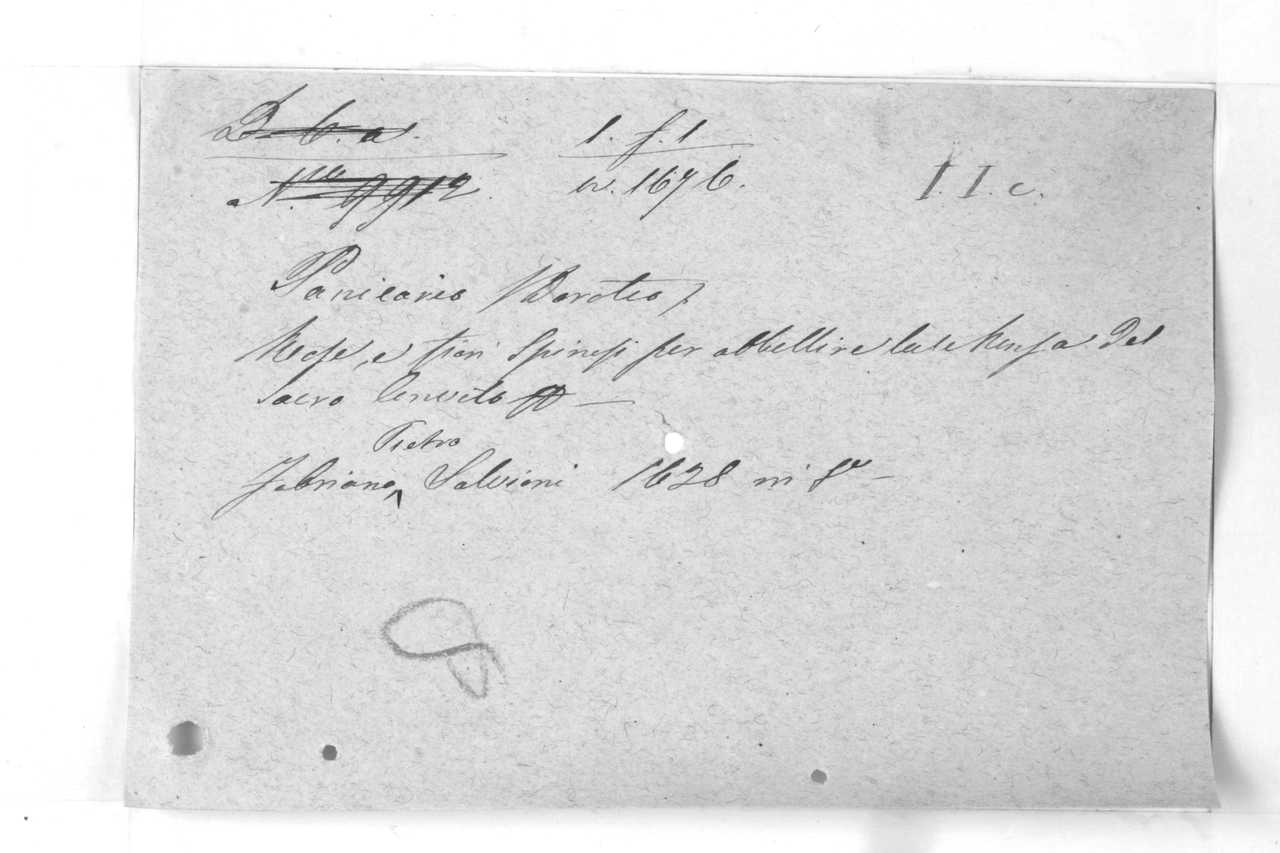 D. b. a. 1. f. 1
N.ro 9912. n. 1676. I. I. c.
Panicario (Doroteo)
Rose, e fiori Spinosi per abbellire la Mensa del
Sacro Convito
Pietro
Fabriano, Salvioni 1628 in 8° —
8